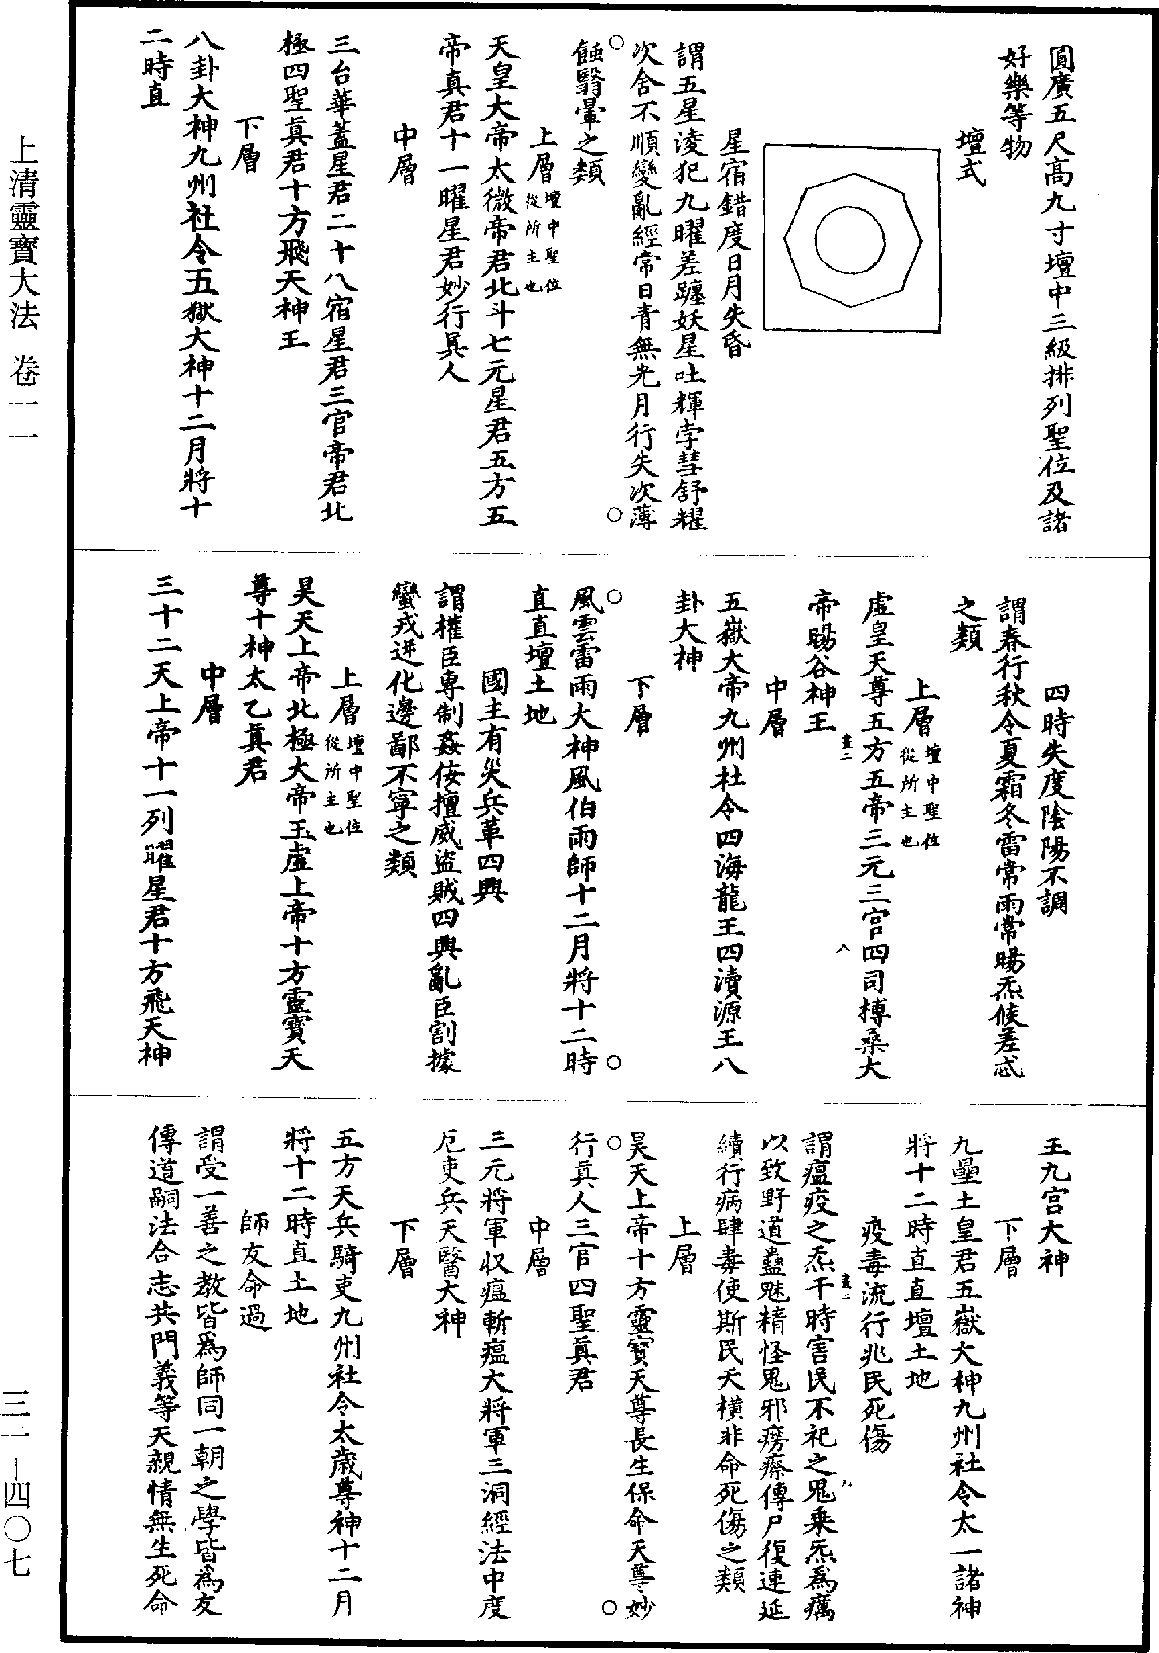 圓廣五尺高九寸壇中三級排列聖位及諸
好樂等物
壇式
星宿錯度日月失昏
謂五星淩犯九曜差躔妖星吐輝孛彗舒耀
次舍不順變亂經常日青無光月行失次薄
蝕翳暈之類
上層壇中聖位從所主也
天皇大帝太微帝君北斗七元星君五方五
帝真君十一曜星君妙行真人
中層
三台華蓋星君二十八宿星君三官帝君北
極四聖真君十方飛天神王
下層
八卦大神九州社令五嶽大神十二月將十
二時直
四時失度陰陽不調
謂春行秋令夏霜冬雷常雨常暘炁候差忒
之類
上層壇中聖位從所主也
虛皇天尊五方五帝三元三官四司榑桑大
帝暘谷神王
中層
五嶽大帝九州社令四海龍王四瀆源王八
卦大神
下層
風雲雷雨大神風伯雨師十二月將十二時
直直壇土地
國主有災兵革四興
謂權臣專制姦佞擅威盜賊四興亂臣割據
蠻戎逆化邊鄙不寧之類
上層壇中聖位從所主也
昊天上帝北極大帝玉虛上帝十方靈寶天
尊十神太乙真君
中層
三十二天上帝十一列曜星君十方飛天神
王九宮大神
下層
九壘土皇君五嶽大神九州社令太一諸神
將十二時直直壇土地
疫毒流行兆民死傷
謂瘟疫之炁干時害民不祀之鬼乘炁為癘
以致野道蠱魅精怪鬼邪癆瘵傳尸復連延
續行病肆毒使斯民夭橫非命死傷之類
上層
昊天上帝十方靈寶天尊長生保命天尊妙
行真人三官四聖真君
中層
三元將軍收瘟斬瘟大將軍三洞經法中度
厄吏兵天醫大神
下層
五方天兵騎吏九州社令太歲尊神十二月
將十二時直土地
師友命過
謂受一善之教皆為師同一朝之學皆為友
傳道嗣法合志共門義等天親情無生死命
上清靈寶大法 卷一一
三一—四〇七